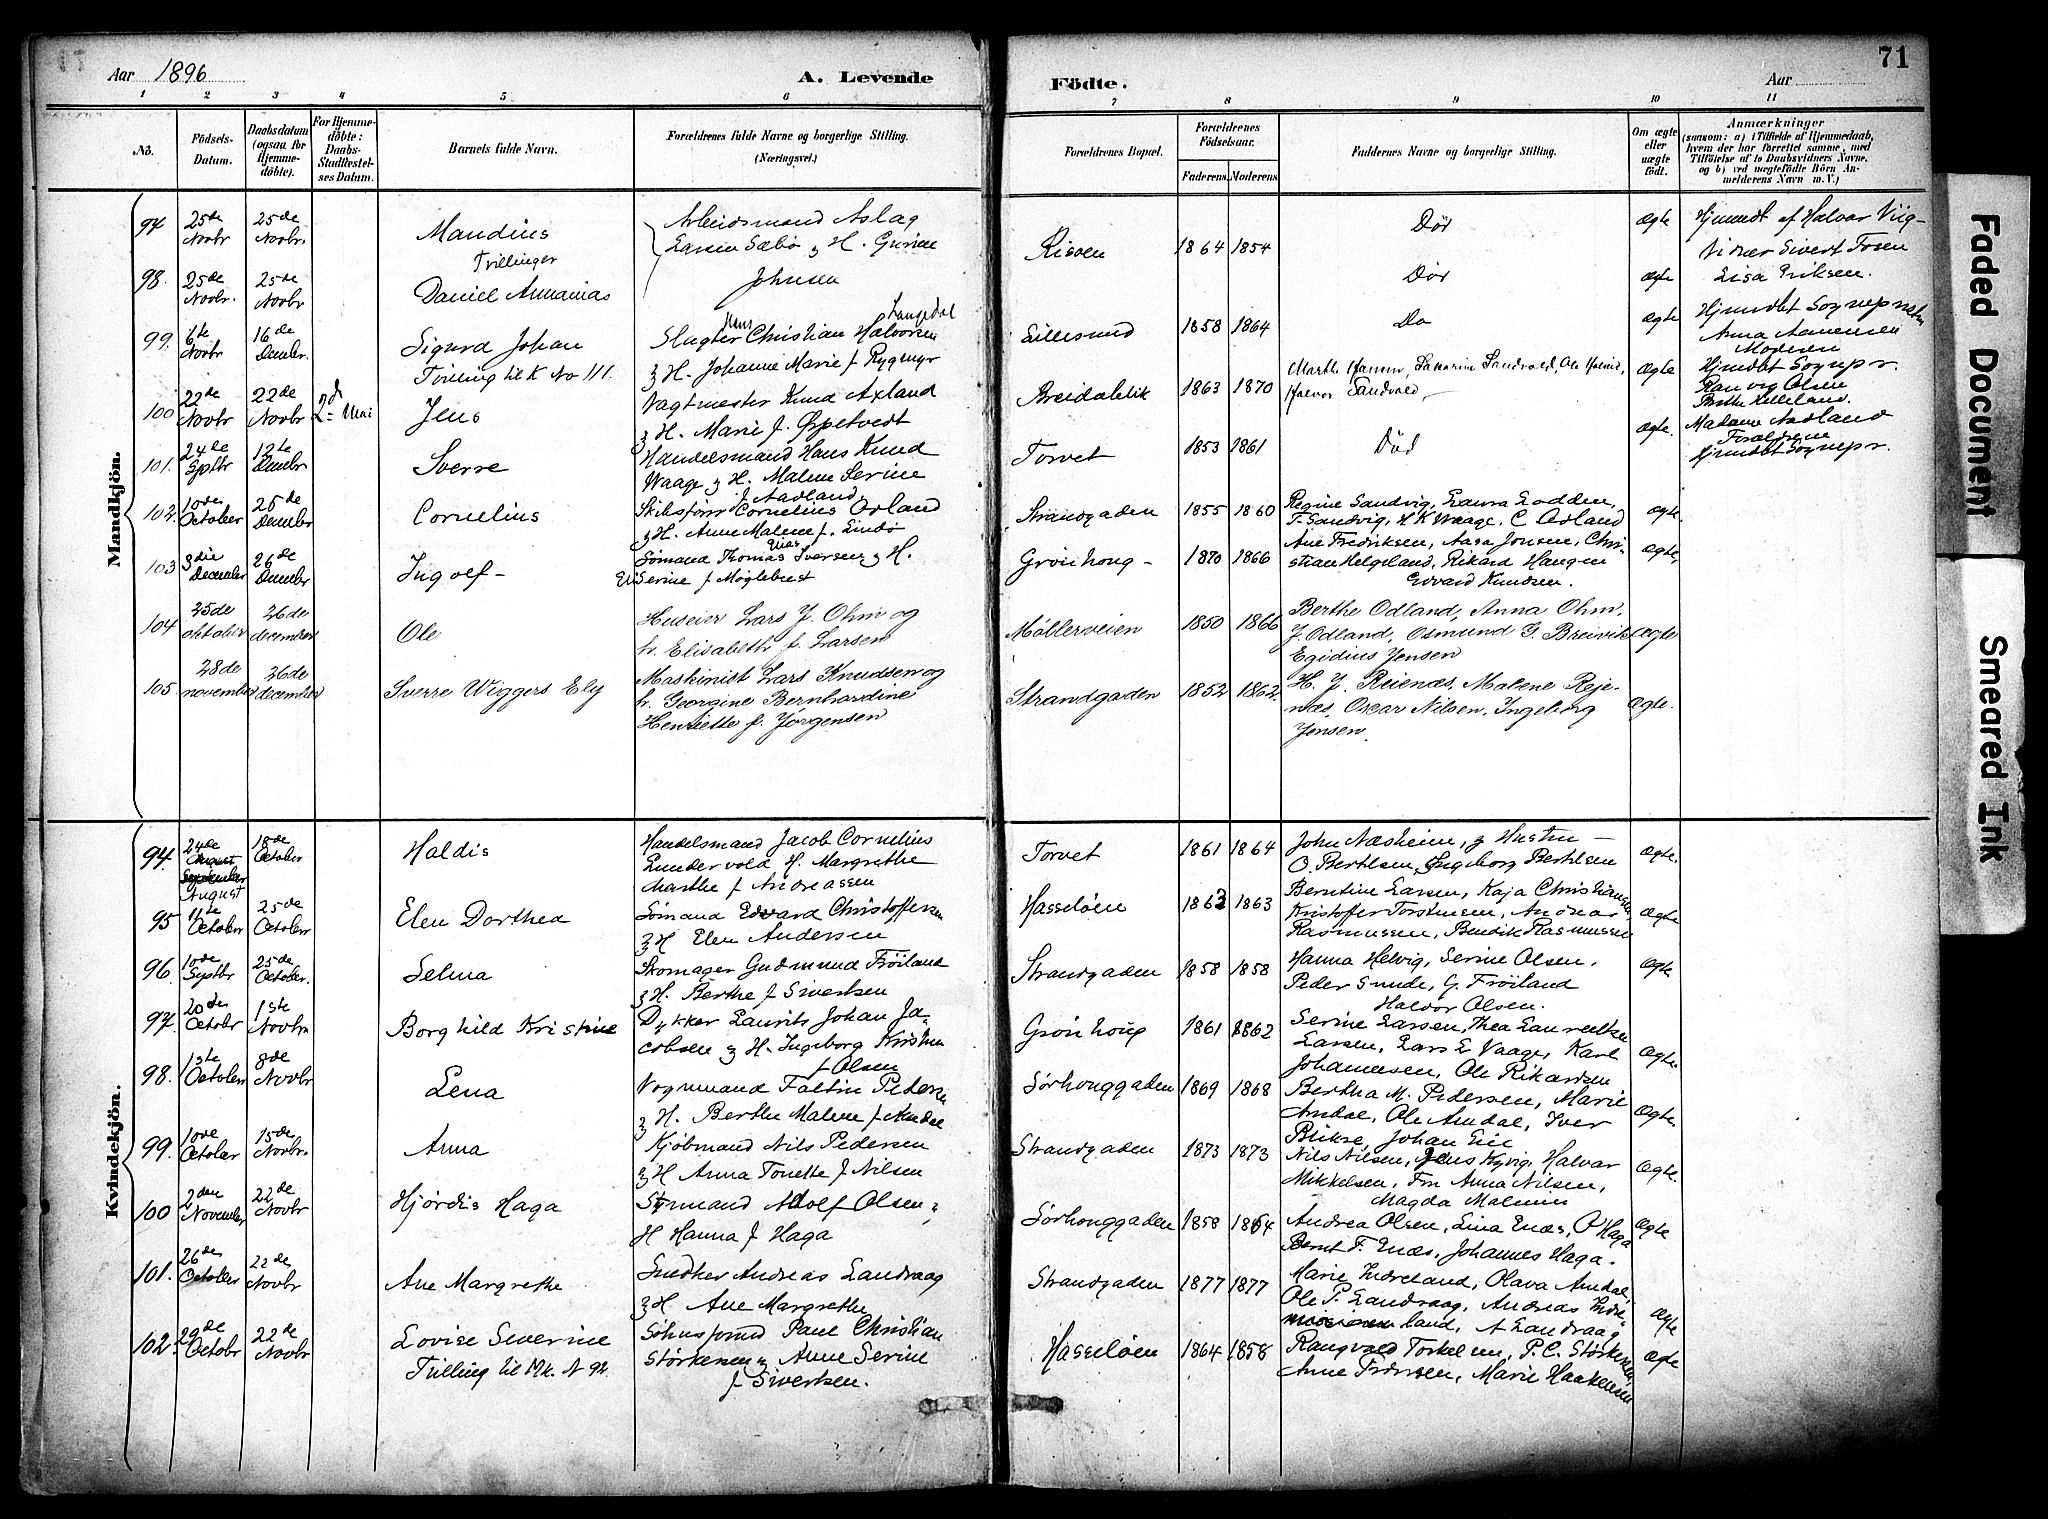 71
Aar 1896
A. Levende
Födte.
Aar
1 2 3 4 5 6 7 8 9 10 11
No.
Födsels-
Datum.
Daabsdatum
(ogsaa for
Hjemme-
döbte).
For Hjemme-
döbte:
Daabs-
Stadfæstel-
ses Datum.
Barnets fulde Navn.
Forældrenes fulde Navne og borgerlige Stilling.
(Næringsvei.)
Forældrenes Bopæl.
Forældrenes
Födselsaar.
Faderens.
Moderens.
Faddernes Navne og borgerlige Stilling.
Om ægte
eller
uægte
födt.
Anmærkninger
(saasom: a) i Tilfælde af Hjemmedaab,
hvem der har forrettet samme, med
Tilföielse af to Daabsvidners Navne,
og b) ved uægtefödte Börn An-
melderens Navn m. V.)
Mandkjön.
97 25de Novbr 25de Novbr. Mandius
Tvillinger
Arbeidsmand Aslag
Larsen Sæbø & H. Gurine
Johnsen
Risøen 1864 1854 Død Ægte
Hjemmdt af Halvor Viig-
Vidner Sivert Tosen
Lisa Eriksen.
98. 25de Novbr. 25de Novbr Daniel Annanias
Død Ægte
99. 6te Novbr 16de Decmbr. Sigurd Johan
Tvilling til K No 111.
Slagter Hans Christian Halvorsen Langedal
& H. Johanne Marie f. Rygmyr
Lillesund 1858 1864 Do Ægte
Hjemdbt Sognepresten
Anna Aanensen
Moderen
100 22de Novbr 22de Novbr 2d Mai Jens
Vagtmester Knud Axland
& H. Marie f. Øspetvedt
Breidablik 1863 1870
Marthe Hamre, Sandvold, Ole
Halvor Sandvold
Ægte
Hjemdbt Sognepr.
Olsen
Berthe Helleland.
101. 24de Sptbr 12te Decmbr Sverre
Handelsmand Hans Knud
Waage & H. Malene Serine
f Aadland
Torvet 1853 1861 Død Ægte.
Madame Aadland
Forældrene
Hjemdbt Sognepr.
102. 10de October 26de Decmbr Cornelius
Skibsfører Cornelius Odland
& H. Anne Malene f. Lindø
Strandgaden 1855 1860
Regine Sandvig, Laura Lodden,
T. Sandvig, H K Waage, C Odland
Ægte.
103 3die December 26de Decmbr Ingolf -
Sømand Thomas Elias Iversen & H.
Serine f Møglebust
Grønhoug - 1870 1866
Ane Fredriksen, Aasa Jonsen, Chri-
stian Helgeland, Rikard Haugen
Edvard Knudsen.
Ægte,
104 25de oktober 26de december Ole
Huseier Lars J. Ohm og
h. Elisabeth f. Larsen
Møllerveien 1850 1866
Berthe Odland, Anna Ohm,
J. Odland, Osmund G. Breivik
Egidius Jensen
ægte
105. 28de november 26de december Sverre Wiggers Ely
Maskinist Lars Knudsen og
h. Georgine Bernhardine
Henriette f. Jørgensen
Strandgaden 1852 1862
H. J. Reienæs, Malene Reje-
næs, Oscar Nilsen, Ingeborg
Jensen.
Ægte.
Kvindekjön.
94. 24de August 18de October Haldis
Handelsmand Jacob Cornelius
Lundervold H. Margrethe
Marthe f Andreassen
Torvet 1861 1864
John Næsheim, & Hustru -
O. Bertelsen, Ingeborg Bertelsen
Ægte.
95 11te October 25de October Elen Dorthea
Sømand Edvard Christoffersen
& H Elen Andersen
Hasseløen 1863 1863
Berntine Larsen, Kaja Christiansen,
Kristoffer Torstensen, Andreas
Rasmussen, Bendik Rasmussen
Ægte
96. 10de Septbr 25de October. Selma
Skomager Gudmund Frøiland
& H. Berthe f Sivertsen
Strandgaden 1858 1858
Hanna Helvig, Serine Olsen,
Peder Sunde, G. Frøiland
Halvor Olsen.
Ægte
97. 20de Octobr 1ste Novbr Borghild Kristine
Dykker Laurits Johan Ja-
cobsen & H. Ingeborg Kristine
f Olsen
Grønhoug 1861 1862
Serine Larsen, Thea Lauritsen
Larsen, Lars E Vaage, Karl
Johannesen, Ole Rikardsen
Ægte.
98. 1ste October 8de Novbr Lena
Vognmand Faltin Pedersen
& H. Berthe Malene f Amdal
Sørhouggaden 1869 1868
Bertha M. Pedersen, Marie
Amdal, Ole Amdal, Iver
Blikse, Johan Eie
Ægte.
99. 10de October 15de Novbr. Anna
Kjøbmand Nils Pedersen
& H Anna Tonette f Nilsen
Strandgaden 1873 1873
Nils Nilsen, Jens Kyvig, Halvar
Mikkelsen, Fru Anna Nilsen,
Magda Malmin
Ægte
100 2den November 22de Novbr Hjørdis Haga
Styrmand Adolf Olsen &
H Hanna f Haga
Sørhouggaden 1858 1864
Andrea Olsen, Lina Enæs, O Haga
Bernt F. Enæs, Johannes Haga.
Ægte
101. 26de October 22de Novbr Ane Margrethe
Snedker Andreas Landraag
& H. Ane Margrethe
Strandgaden 1877 1877
Marie Indreland, Olava Amdal,
Ole P. Landraag, Andreas Indre-
land, A Landraag
Ægte
102. 29de Octobr 22de Novbr Lovise Severine
Tvilling til Mk. N 92.
Paul Christian
Størkersen & Anne Serine
f Sivertsen.
Hasseløen 1864 1858
Rangvald Torkelsen, P.C. Størkersen,
Anne Iversen, Marie Haakensen
Ægte
Faded Document
Smeared Ink